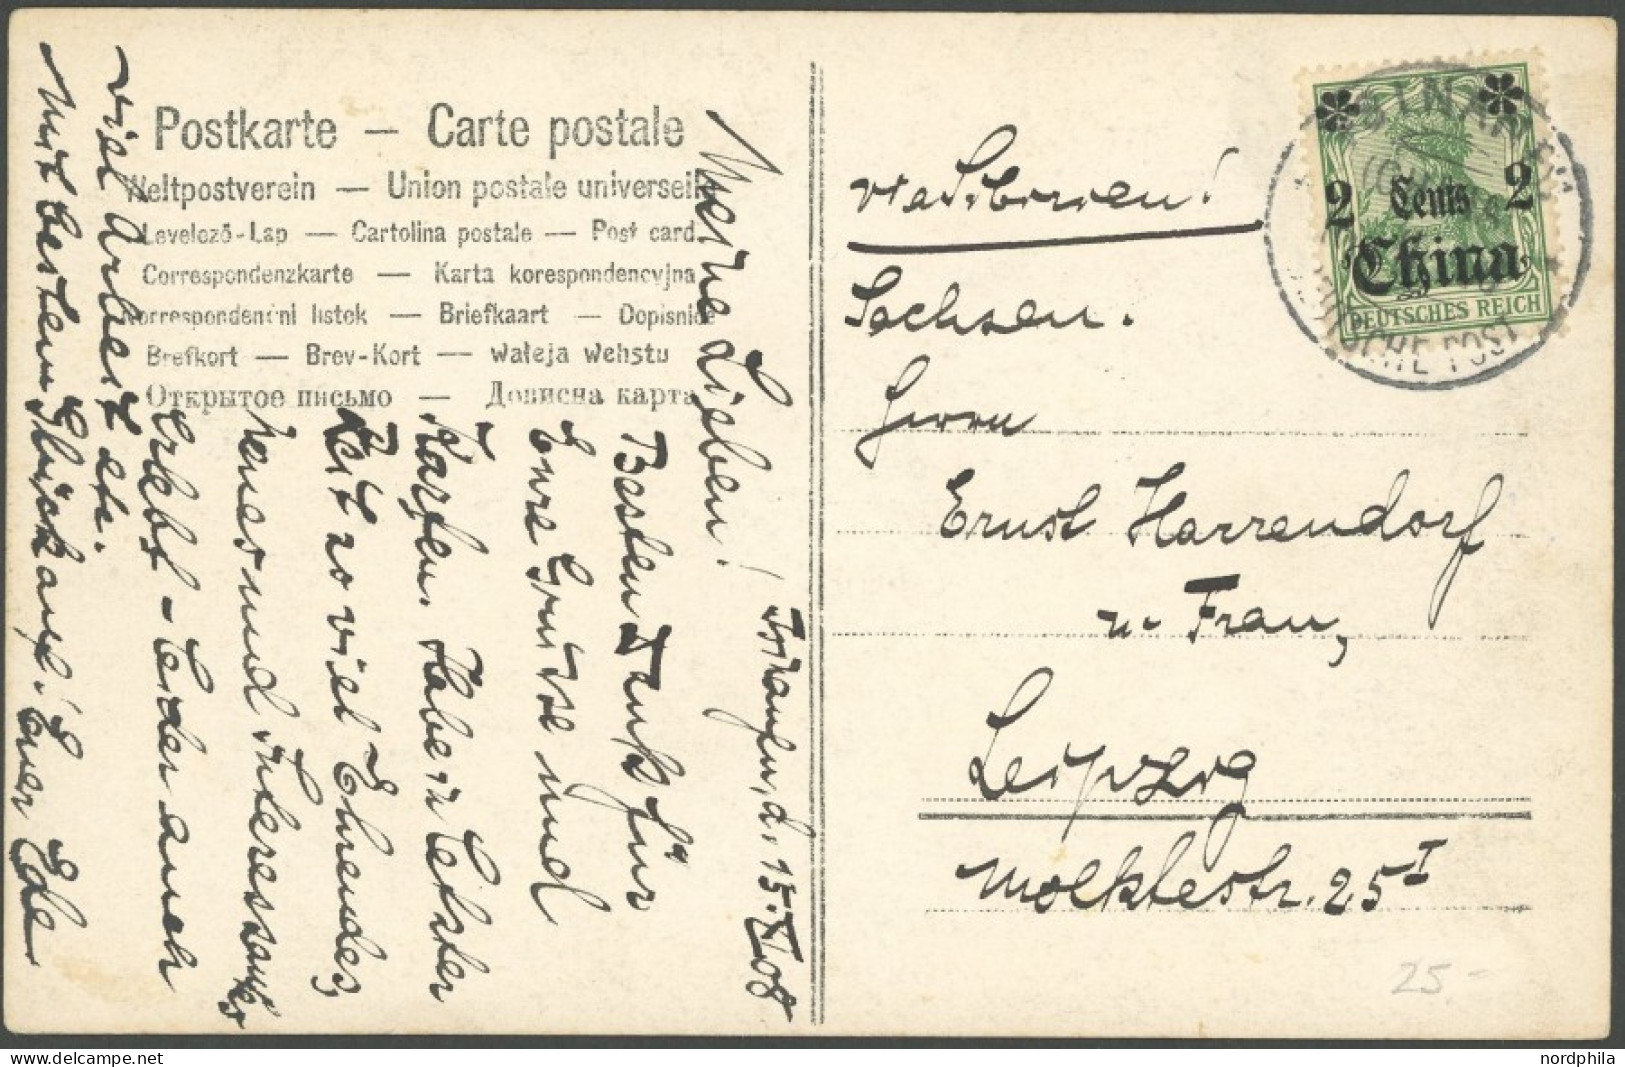 Postkarte — Carte postale
Weltpostverein — Union postale universelle
Levelező-Lap — Cartolina postale — Post card.
Correspondenzkarte — Karta korespondencyjna
Korrespondenční lístek — Briefkaart — Dopisnice
Brefkort — Brev-Kort — Waleja Wehstu
Открытое письмо — Дописна карта
Tsinanfu, d. 15.X 08
Meine Lieben!
Besten Dank für
Eure Grüsse und
Karten. Habe in letzter
Zeit so viel
neues und Interessantes
erlebt - leider auch
viel Arbeit etc.
Mit besten Glückauf! Euer Ede
via Sibirien!
Sachsen.
Herrn
Ernst Harrendorf
u. Frau,
Leipzig
Moltkestr. 25 I
25.-
2 Cents 2
China
DEUTSCHES REICH
DEUTSCHE POST
nordphila